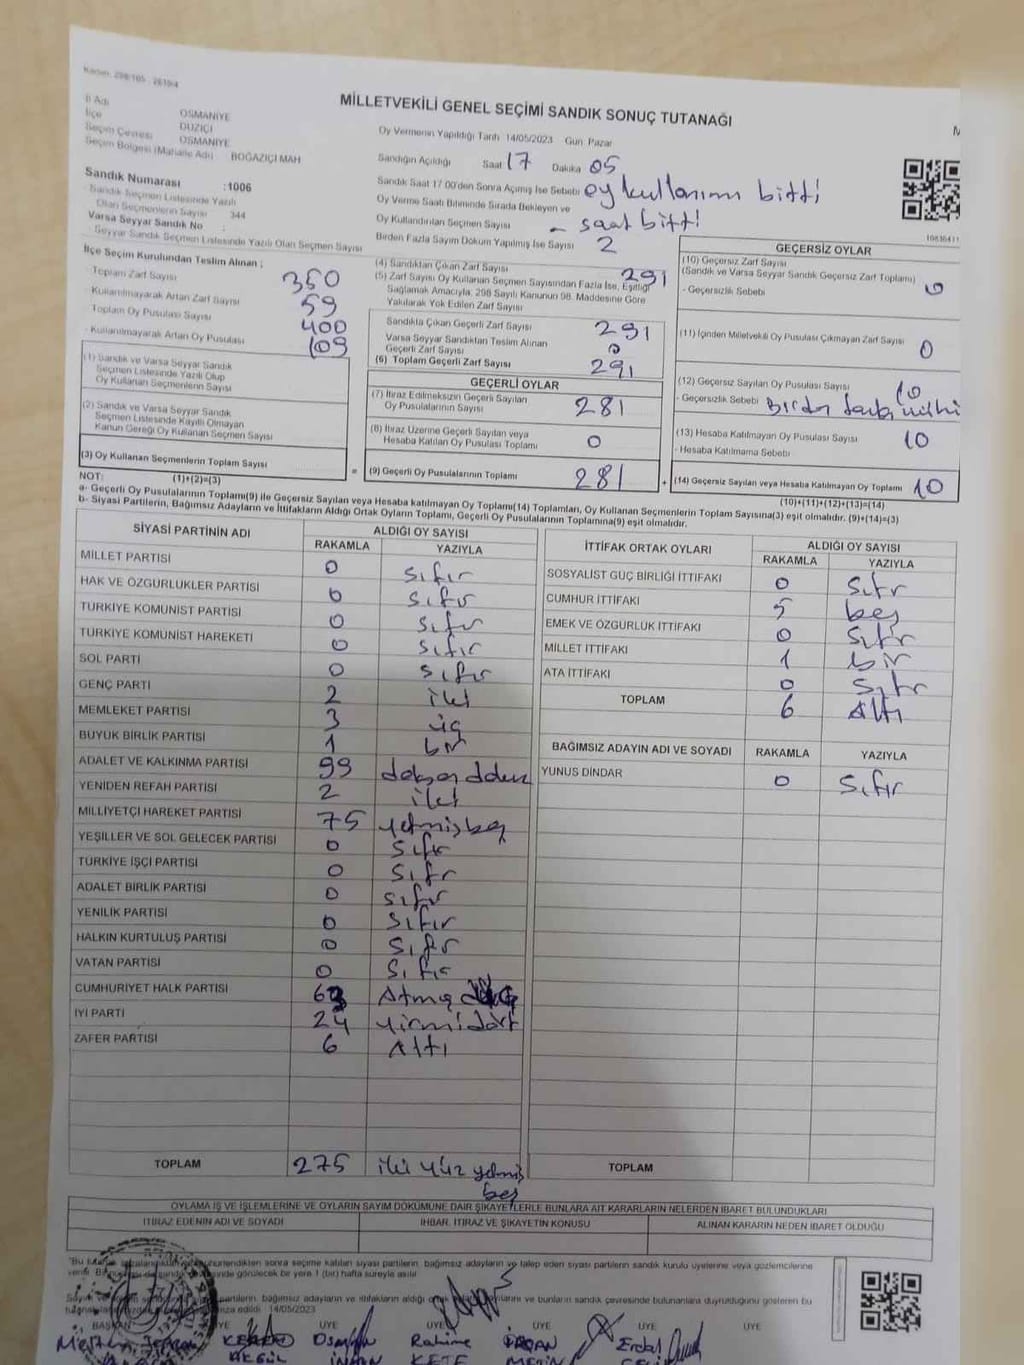 MİLLETVEKİLİ GENEL SEÇİMİ SANDIK SONUÇ TUTANAĞI
İl Adı OSMANİYE
İlçe DÜZİÇİ
Seçim Çevresi OSMANİYE
Seçim Bölgesi (Mahalle Adı) BOĞAZİÇİ MAH
Sandık Numarası :1006
Sandık Seçmen Listesinde Yazılı
Olan Seçmenlerin Sayısı 344
Varsa Seyyar Sandık No :
Seyyar Sandık Seçmen Listesinde Yazılı Olan Seçmen Sayısı
Oy Vermenin Yapıldığı Tarih 14/05/2023 Gün: Pazar
Sandığın Açıldığı Saat 17 Dakika 05
Sandık Saat 17:00'den Sonra Açılmış İse Sebebi oy kullanımı bitti
Oy Verme Saati Bitiminde Sırada Bekleyen ve
Oy Kullandırılan Seçmen Sayısı - saat bitti
Birden Fazla Sayım Döküm Yapılmış İse Sayısı 2
İlçe Seçim Kurulundan Teslim Alınan ;
- Toplam Zarf Sayısı 350
- Kullanılmayarak Artan Zarf Sayısı 59
- Toplam Oy Pusulası Sayısı 400
- Kullanılmayarak Artan Oy Pusulası 109
(1) Sandık ve Varsa Seyyar Sandık
Seçmen Listesinde Yazılı Olup
Oy Kullanan Seçmenlerin Sayısı
(2) Sandık ve Varsa Seyyar Sandık
Seçmen Listesinde Kayıtlı Olmayan
Kanun Gereği Oy Kullanan Seçmen Sayısı
(3) Oy Kullanan Seçmenlerin Toplam Sayısı
(1)+(2)=(3)
(4) Sandıktan Çıkan Zarf Sayısı 291
(5) Zarf Sayısı Oy Kullanan Seçmen Sayısından Fazla İse, Eşitliği
Sağlamak Amacıyla; 298 Sayılı Kanunun 98. Maddesine Göre
Yakılarak Yok Edilen Zarf Sayısı
Sandıkta Çıkan Geçerli Zarf Sayısı 291
Varsa Seyyar Sandıktan Teslim Alınan
Geçerli Zarf Sayısı 0
(6) Toplam Geçerli Zarf Sayısı 291
GEÇERLİ OYLAR
(7) İtiraz Edilmeksizin Geçerli Sayılan
Oy Pusulalarının Sayısı 281
(8) İtiraz Üzerine Geçerli Sayılan veya
Hesaba Katılan Oy Pusulası Toplamı 0
= (9) Geçerli Oy Pusulalarının Toplamı 281 +
GEÇERSİZ OYLAR
(10) Geçersiz Zarf Sayısı
(Sandık ve Varsa Seyyar Sandık Geçersiz Zarf Toplamı) 0
- Geçersizlik Sebebi
(11) İçinden Milletvekili Oy Pusulası Çıkmayan Zarf Sayısı 0
(12) Geçersiz Sayılan Oy Pusulası Sayısı 10
- Geçersizlik Sebebi
(13) Hesaba Katılmayan Oy Pusulası Sayısı 10
- Hesaba Katılmama Sebebi
(14) Geçersiz Sayılan veya Hesaba Katılmayan Oy Toplamı 10
(10)+(11)+(12)+(13)=(14)
NOT:
a- Geçerli Oy Pusulalarının Toplamı(9) ile Geçersiz Sayılan veya Hesaba katılmayan Oy Toplamı(14) Toplamları, Oy Kullanan Seçmenlerin Toplam Sayısına(3) eşit olmalıdır. (9)+(14)=(3)
b- Siyasi Partilerin, Bağımsız Adayların ve İttifakların Aldığı Ortak Oyların Toplamı, Geçerli Oy Pusulalarının Toplamına(9) eşit olmalıdır.
SİYASİ PARTİNİN ADI ALDIĞI OY SAYISI
RAKAMLA YAZIYLA
MİLLET PARTİSİ 0 sıfır
HAK VE ÖZGÜRLÜKLER PARTİSİ 0 sıfır
TÜRKİYE KOMÜNİST PARTİSİ 0 sıfır
TÜRKİYE KOMÜNİST HAREKETİ 0 sıfır
SOL PARTİ 0 sıfır
GENÇ PARTİ 2 iki
MEMLEKET PARTİSİ 3 üç
BÜYÜK BİRLİK PARTİSİ 1 bir
ADALET VE KALKINMA PARTİSİ 99 doksan dokuz
YENİDEN REFAH PARTİSİ 2 iki
MİLLİYETÇİ HAREKET PARTİSİ 75 yetmişbeş
YEŞİLLER VE SOL GELECEK PARTİSİ 0 sıfır
TÜRKİYE İŞÇİ PARTİSİ 0 sıfır
ADALET BİRLİK PARTİSİ 0 sıfır
YENİLİK PARTİSİ 0 sıfır
HALKIN KURTULUŞ PARTİSİ 0 sıfır
VATAN PARTİSİ 0 sıfır
CUMHURİYET HALK PARTİSİ 63 Atmış
İYİ PARTİ 24 yirmidört
ZAFER PARTİSİ 6 Altı
TOPLAM 275 iki yüz yetmiş
beş
İTTİFAK ORTAK OYLARI ALDIĞI OY SAYISI
RAKAMLA YAZIYLA
SOSYALİST GÜÇ BİRLİĞİ İTTİFAKI 0 sıfır
CUMHUR İTTİFAKI 5 beş
EMEK VE ÖZGÜRLÜK İTTİFAKI 0 sıfır
MİLLET İTTİFAKI 1 bir
ATA İTTİFAKI 0 sıfır
TOPLAM 6 Altı
BAĞIMSIZ ADAYIN ADI VE SOYADI RAKAMLA YAZIYLA
YUNUS DİNDAR 0 sıfır
TOPLAM
OYLAMA İŞ VE İŞLEMLERİNE VE OYLARIN SAYIM DÖKÜMÜNE DAİR ŞİKAYETLERLE BUNLARA AİT KARARLARIN NELERDEN İBARET BULUNDUKLARI
İTİRAZ EDENİN ADI VE SOYADI İHBAR, İTİRAZ VE ŞİKAYETİN KONUSU ALINAN KARARIN NEDEN İBARET OLDUĞU
14/05/2023
BAŞKAN ÜYE ÜYE ÜYE ÜYE ÜYE ÜYE
Rahime Erdal
KETE